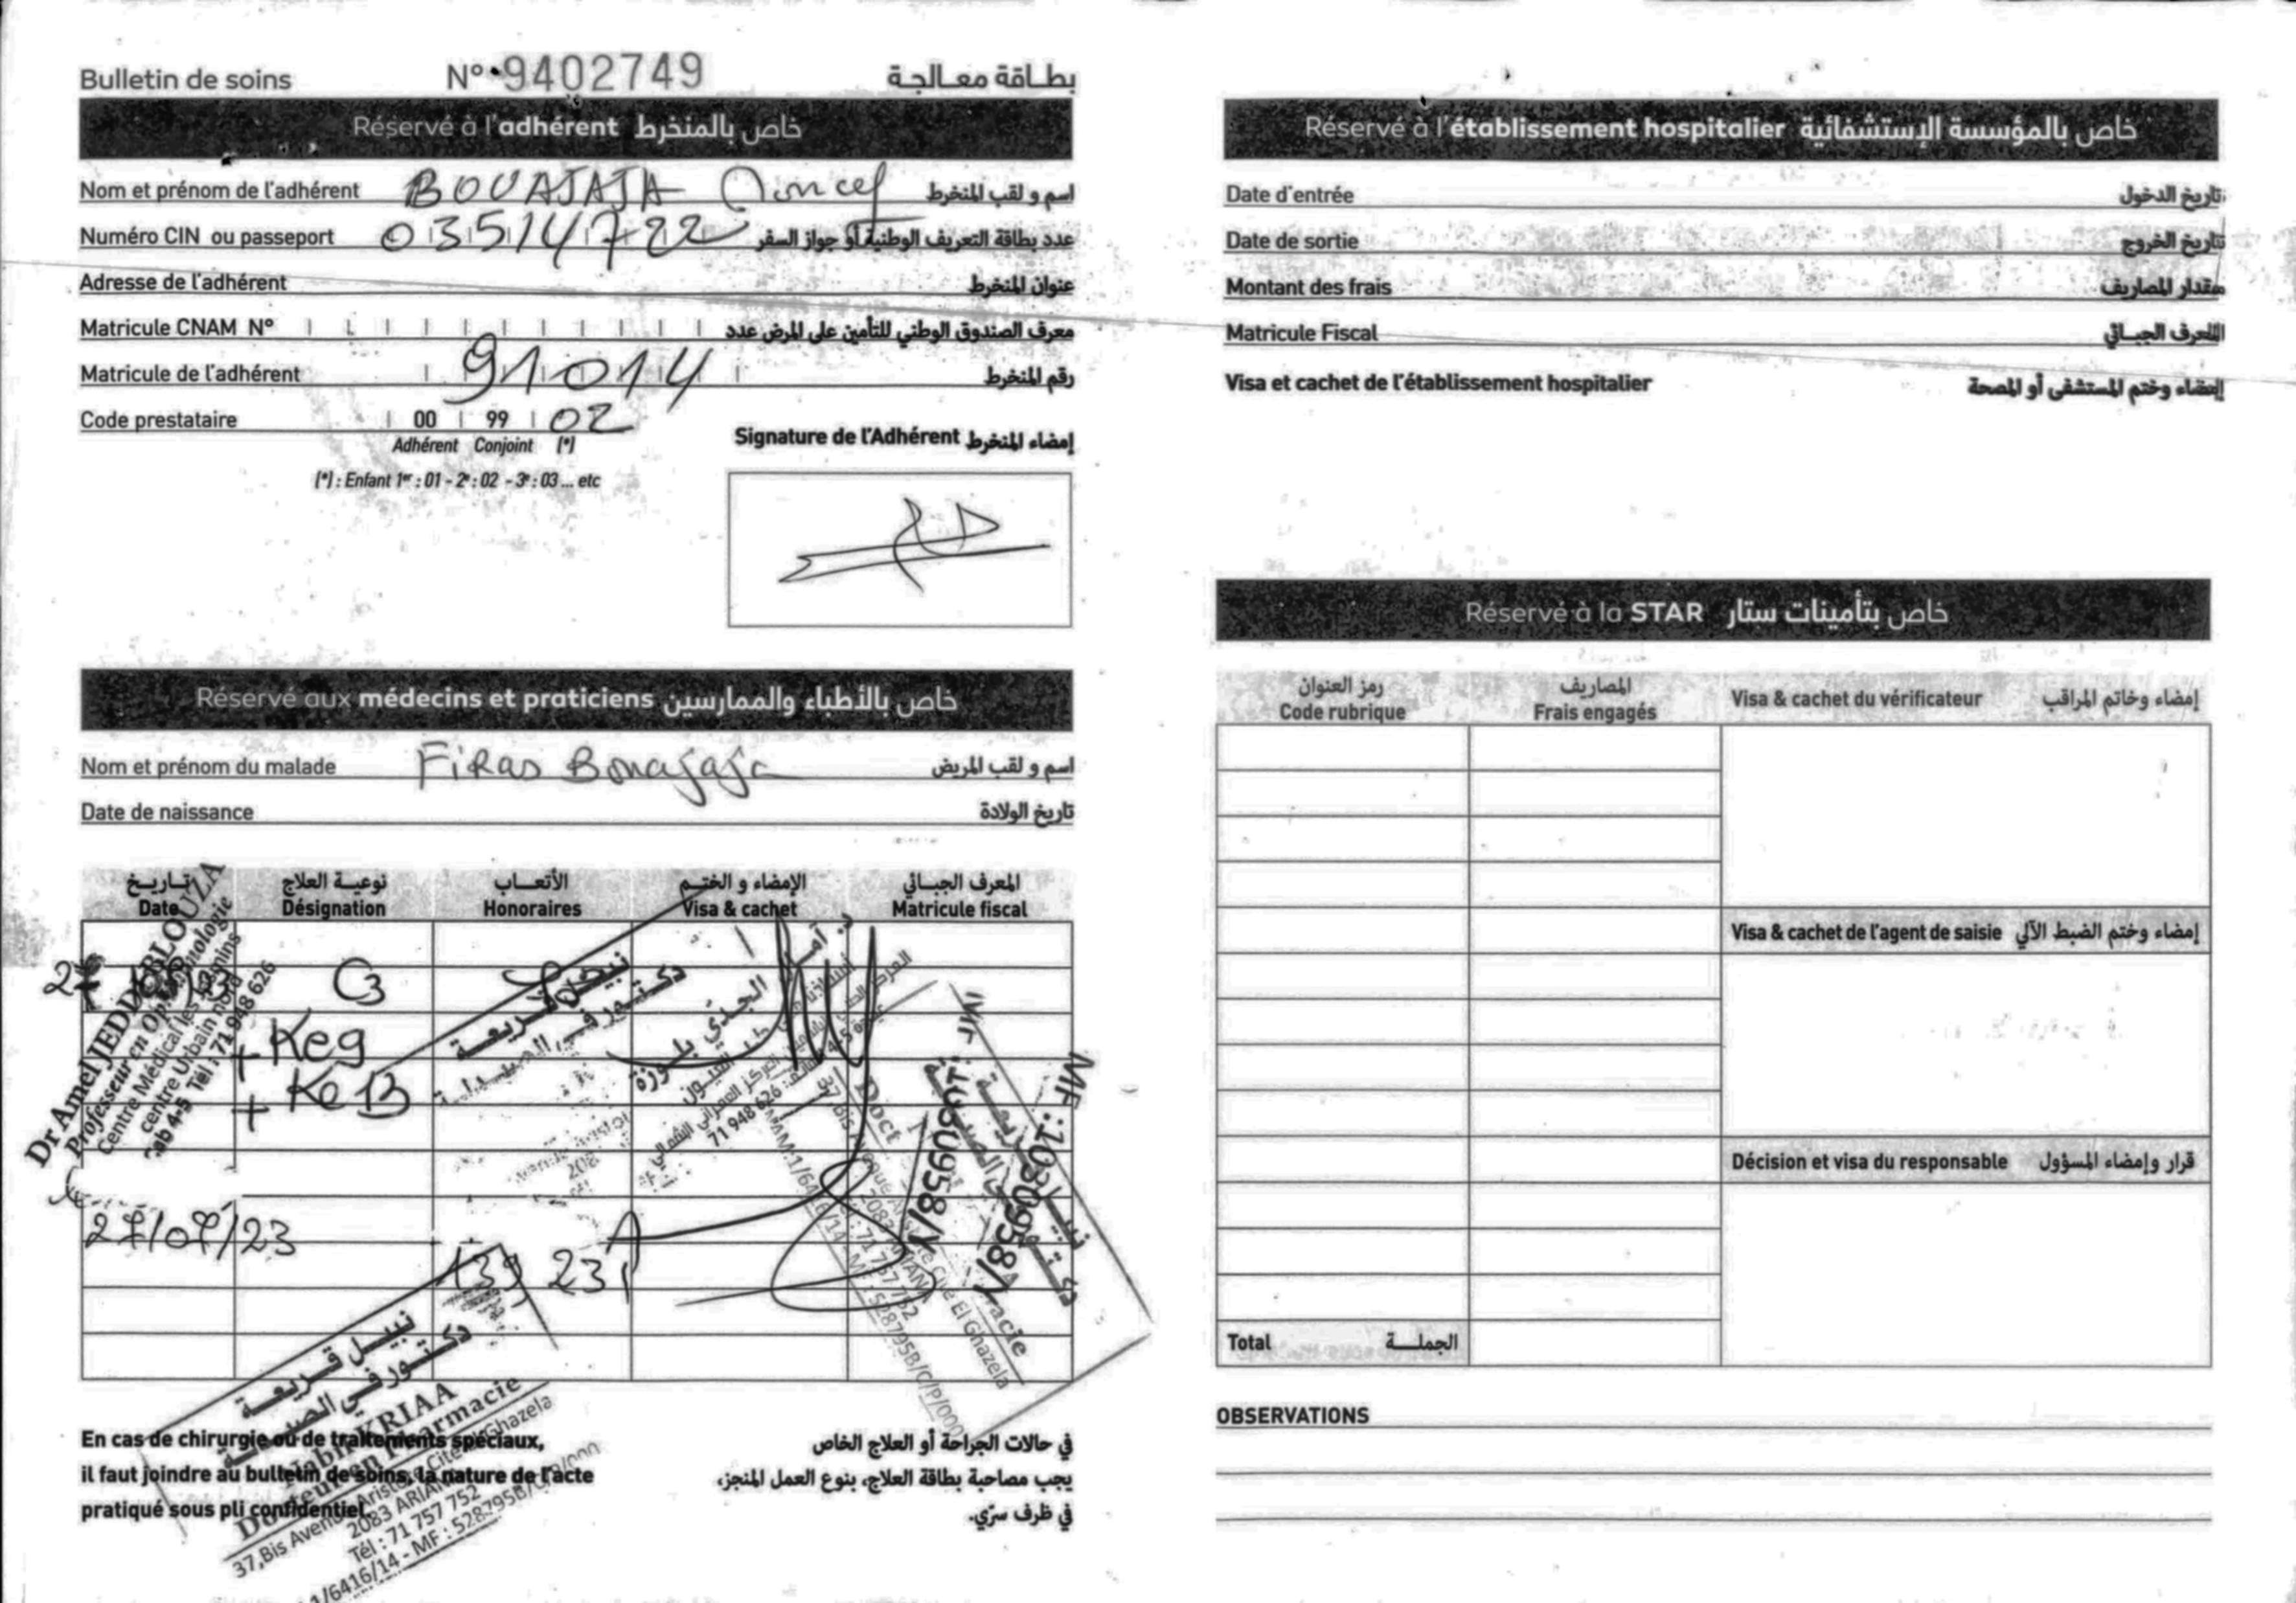 Bulletin de soins N° 9402749 بطاقة معالجة
Réservé à l'adhérent خاص بالمنخرط
Nom et prénom de l'adhérent BOUAJAJA Moncef اسم و لقب المنخرط
Numéro CIN ou passeport 03514722 عدد بطاقة التعريف الوطنية أو جواز السفر
Adresse de l'adhérent عنوان المنخرط
Matricule CNAM N° معرف الصندوق الوطني للتأمين على المرض عدد
Matricule de l'adhérent 91014 رقم المنخرط
Code prestataire 00 99 02
Adhérent Conjoint (*)
(*) : Enfant 1er : 01 - 2e : 02 - 3e : 03 ... etc
Signature de l'Adhérent إمضاء المنخرط
Réservé aux médecins et praticiens خاص بالأطباء والممارسين
Nom et prénom du malade Firas Bouajaja اسم و لقب المريض
Date de naissance تاريخ الولادة
تاريخ نوعية العلاج الأتعاب الإمضاء و الختم المعرف الجبائي
Date Désignation Honoraires Visa & cachet Matricule fiscal
C3
+ Keg
+ Ke B
Dr Amel JEDDI BLOUZA
Professeur en Ophtalmologie
Centre Médical les Jasmins
centre Urbain nord
Cab 4-5 Tél : 71 948 626
نبيل قريعة
دكتور في الصيدلة
71 948 626
27/07/23
MF :
نبيل قريعة
دكتور في الصيدلة
Nabil KRIAA
Docteur en Pharmacie
37,Bis Avenue Aristote Cité El Ghazela
2083 ARIANA
Tél : 71 757 752
1/6416/14 - MF : 528795B/C/P/000
En cas de chirurgie ou de traitements spéciaux,
il faut joindre au bulletin de soins, la nature de l'acte
pratiqué sous pli confidentiel.
في حالات الجراحة أو العلاج الخاص
يجب مصاحبة بطاقة العلاج، بنوع العمل المنجز،
في ظرف سرّي.
Réservé à l'établissement hospitalier خاص بالمؤسسة الإستشفائية
Date d'entrée تاريخ الدخول
Date de sortie تاريخ الخروج
Montant des frais مقدار المصاريف
Matricule Fiscal المعرف الجبائي
Visa et cachet de l'établissement hospitalier إمضاء وختم المستشفى أو المصحة
Réservé à la STAR خاص بتأمينات ستار
رمز العنوان المصاريف
Code rubrique Frais engagés
Visa & cachet du vérificateur إمضاء وخاتم المراقب
Visa & cachet de l'agent de saisie إمضاء وختم الضبط الآلي
Décision et visa du responsable قرار وإمضاء المسؤول
Total الجملة
OBSERVATIONS